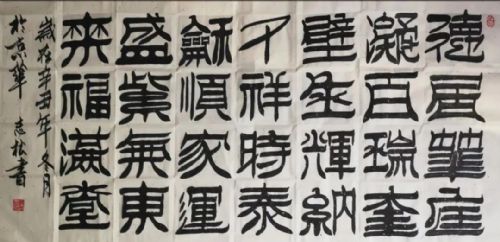 德居華
凝百瑞奎
璧承輝納
千祥時泰
龢順家運
盛紫氣東
来福滿堂
歲在辛丑年冬月
於京華 志松書